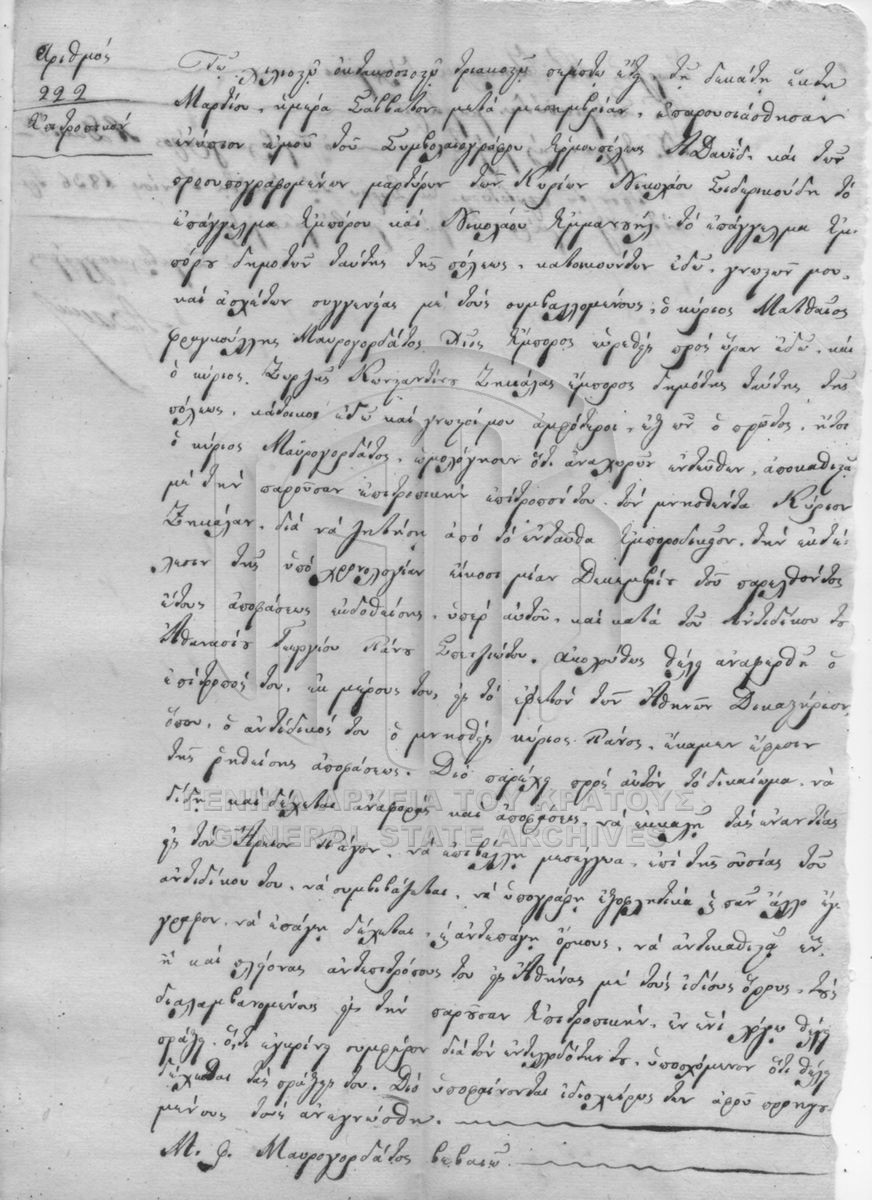 Αριθμός
222
Επιτροπικόν
Τῷ χιλιοςῷ ὀκτακοσιοςῷ τριακοςῷ πέμπτῳ ἔτει, τῇ δεκάτῃ ἕκτῃ
Μαρτίου, ἡμέρα Σάββατον μετά μεσημβρίαν, ἐπαρουσιάσθησαν
ἐνώπιον ἐμοῦ τοῦ Συμβολαιογράφου Ἑρμουπόλεως Δαυίδ, καί τῶν
προσυπογραφομένων μαρτύρων τῶν Κυρίων Νικολάου Σιδερικούδη τό
ἐπάγγελμα ἐμπόρου καί Νικολάου Ἐμμανουήλ τό ἐπάγγελμα ἐμ-
πόρου δημοτῶν ταύτης τῆς πόλεως, κατοικούντων ἐδῶ, γνωςῶν μου,
καί ἀσχέτων συγγενείας μέ τούς συμβαλλομένους, ὁ κύριος Ματθαῖος
Φραγκούλης Μαυρογορδάτος Χῖος ἔμπορος εὑρεθείς πρός ὥραν ἐδῶ, καί
ὁ κύριος Ζωρζῆς Κωνςαντίνου Ζηκάλας ἔμπορος δημότης ταύτης τῆς
πόλεως, κάτοικοι ἐδῶ καί γνωςοί μου ἀμφότεροι, ἐξ ὧν ὁ πρῶτος, ἤτοι
ὁ κύριος Μαυρογορδάτος, ὡμολόγησεν ὅτι ἀναχωρῶν ἐντεῦθεν, ἀποκαθιςᾷ
μέ τήν παροῦσαν ἐπιτροπικήν ἐπίτροπόν του τόν μνησθέντα Κύριον
Ζηκάλαν, διά νά ζητήσῃ ἀπό τό ἐνταῦθα Ἐμποροδικεῖον, τήν ἐκτέ-
λεσιν τῆς ὑπό χρονολογίαν εἴκοσι μίαν Δεκεμβρίου τοῦ παρελθόντος
ἔτους ἀποφάσεως ἐκδοθείσης, ὑπέρ αὐτοῦ, καί κατά τοῦ ἀντιδίκου του
Ἀθανασίου Γεωργίου Πάνου Σπετζιώτου, ἀκολούθως θέλει ἀναφερθῆ ὁ
ἐπίτροπός του, ἐκ μέρους του, εἰς τό ἐφετόν τῶν Ἀθηνῶν Δικαςήριον,
ὅπου, ὁ ἀντίδικός του ὁ μνησθείς κύριος Πάνος, ἔκαμεν ἔφεσιν
τῆς ῥηθείσης ἀποφάσεως. Διό παρέχει πρός αὐτόν τό δικαίωμα, νά
δίδῃ καί δέχεται ἀναφοράς καί ἀποφάσεις, νά ἐκκαλῇ τάς ἐναντίας
εἰς τόν Ἄρειον Πάγον, νά ἐπιβάλλῃ μεσέγγυα, ἐπί τῆς οὐσίας τοῦ
ἀντιδίκου του, νά συμβιβάζεται, νά ὑπογράφῃ ἐξοφλητικά ἤ πᾶν ἄλλο ἔγ-
γραφον, νά ἐπάγῃ δέχεται, ἤ ἀντεπάγῃ ὅρκους, νά ἀντικαθιςᾷ ἕν,
ἤ καί πλείονας ἀντεπιτρόπους του εἰς Ἀθήνας μέ τούς ἰδίους ὅρους, τούς
διαλαμβανομένους εἰς τήν παροῦσαν ἐπιτροπικήν, ἐν ἑνί λόγῳ θέλει
πράξει ὅ,τι ἐγκρίνει συμφέρον διά τόν ἐντολοδότην του, ὑποσχόμενον ὅτι θέλει
δέχεται τάς πράξεις του. Διό ὑποφαίνονται ἰδιοχείρως τῶν ἀφοῦ προηγου-
μένως τούς ἀνεγνώσθη.
Μ. Φ. Μαυρογορδάτος βεβαιῶ
ΓΕΝΙΚΑ ΑΡΧΕΙΑ ΤΟΥ ΚΡΑΤΟΥΣ
GENERAL STATE ARCHIVES